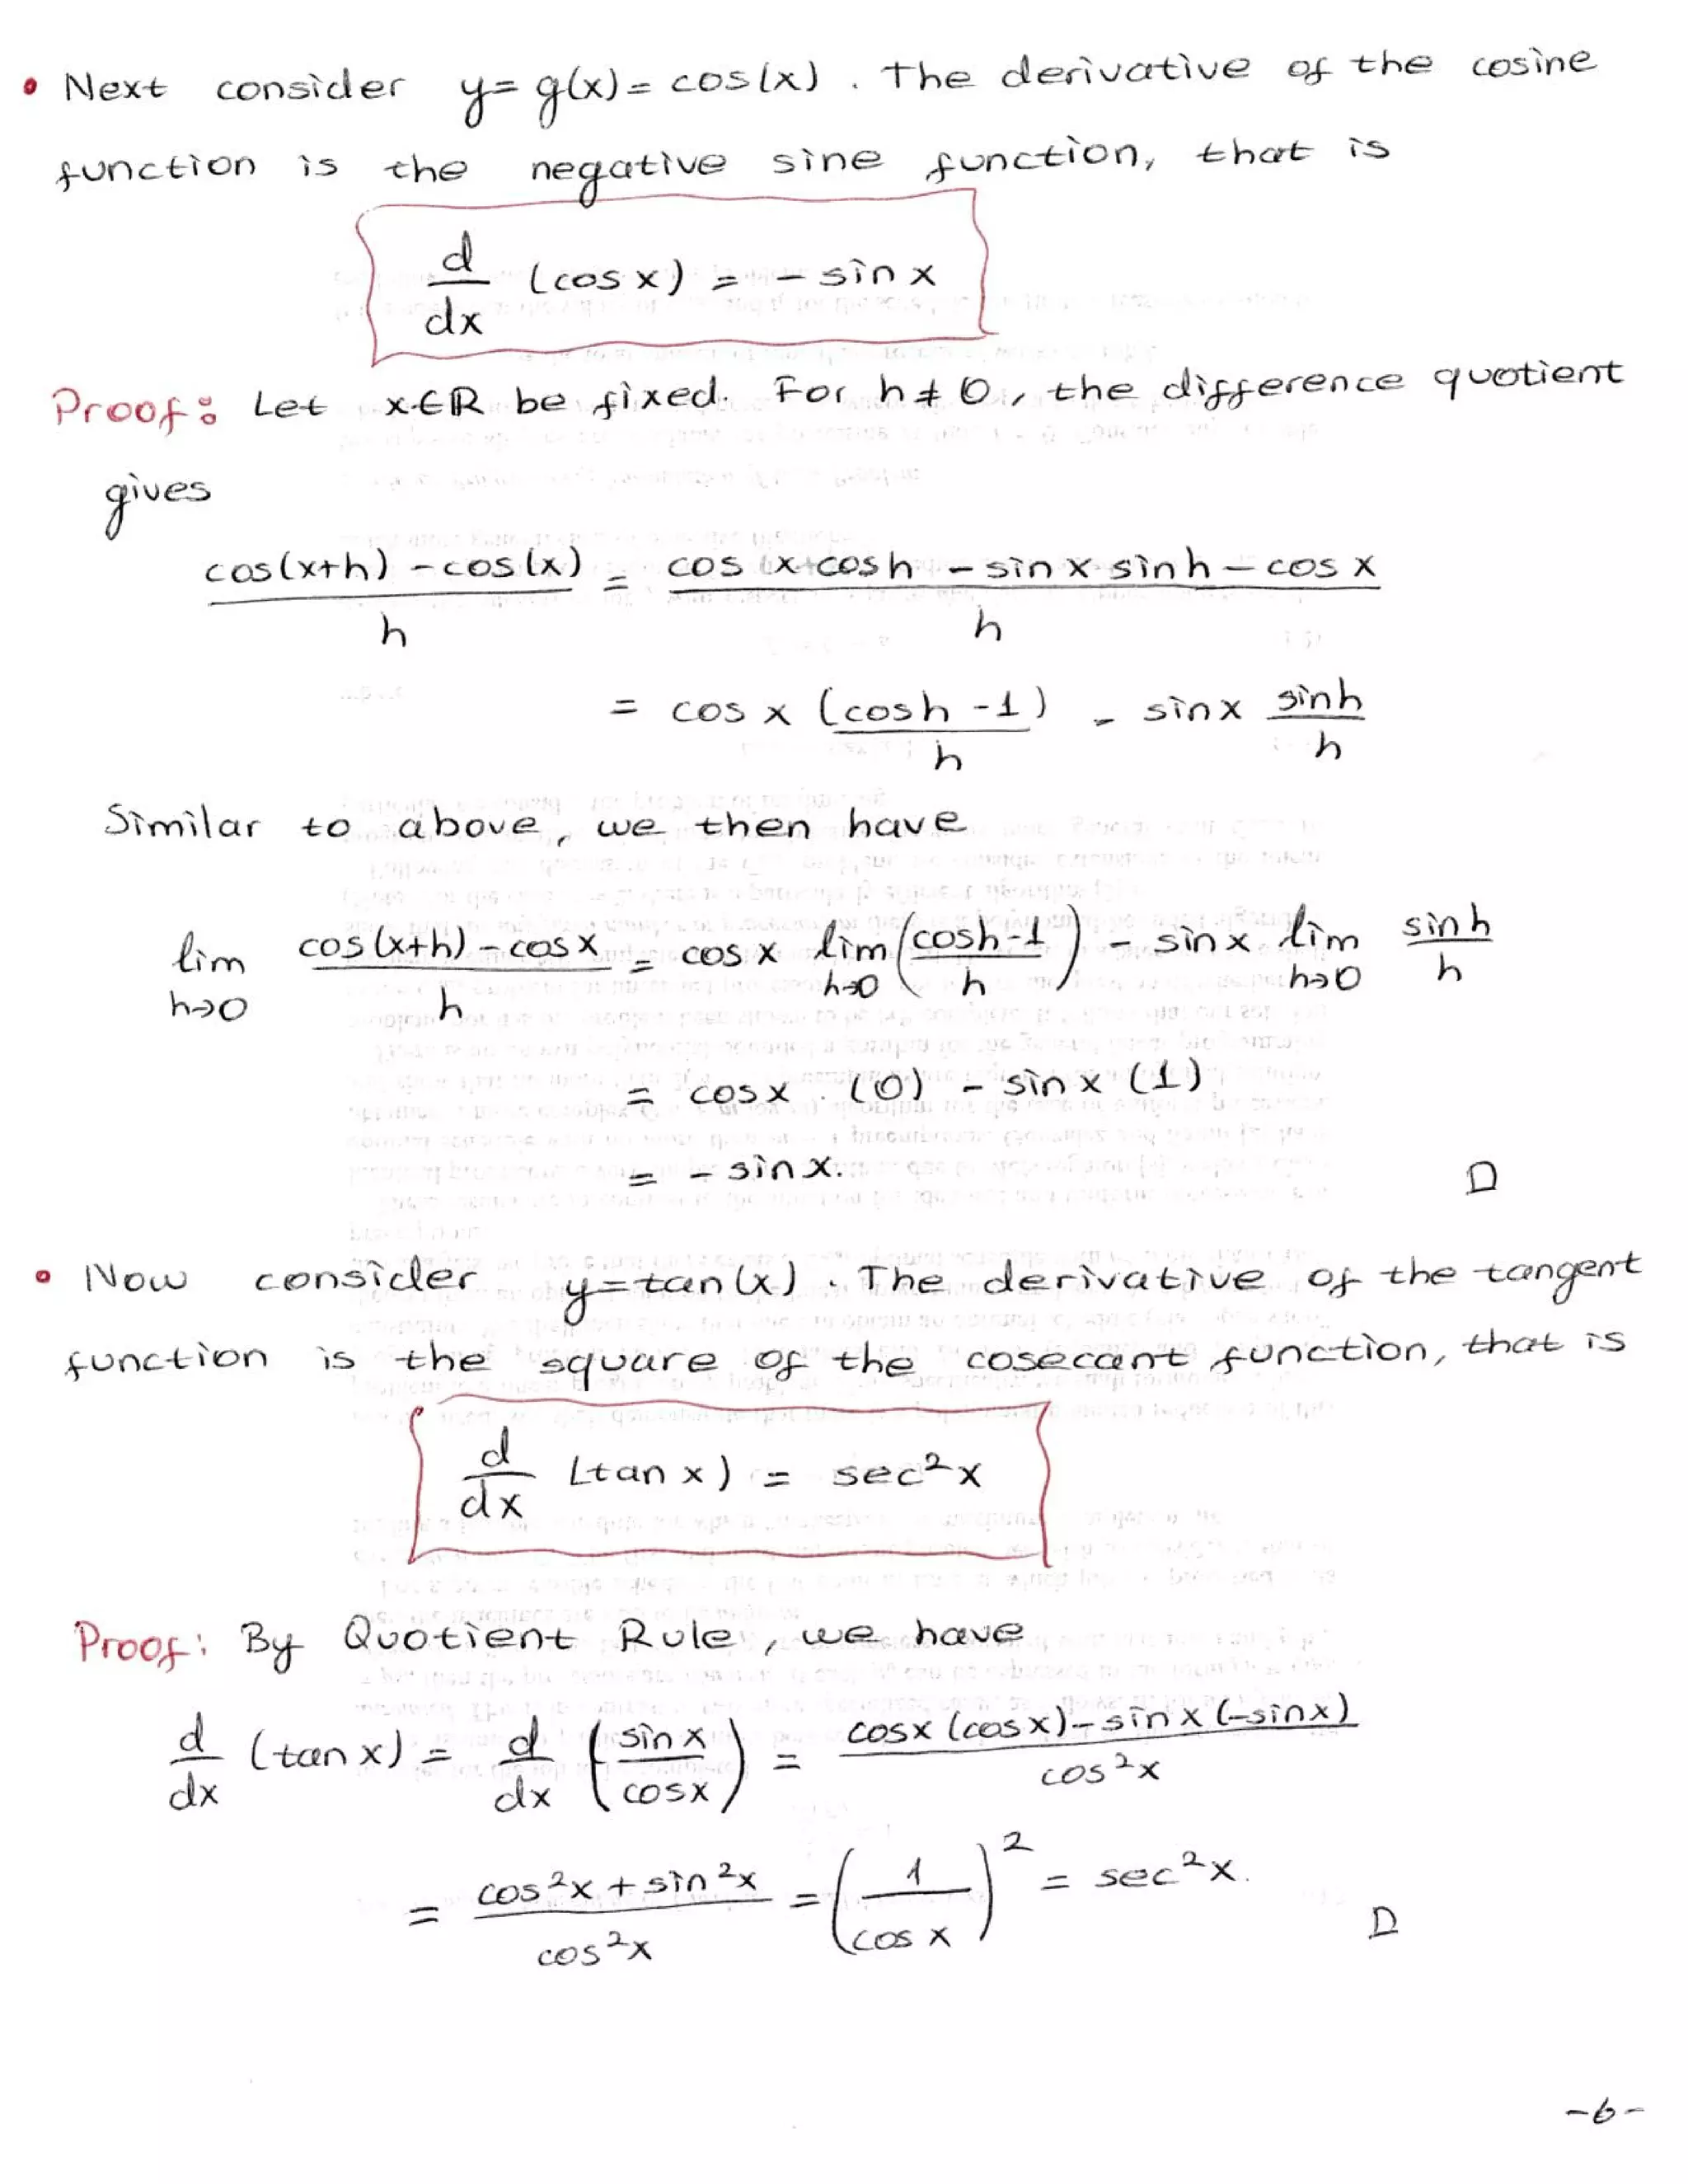 • Next consider y = g(x) = cos(x). The derivative of the cosine
function is the negative sine function, that is
d/dx (cos x) = - sin x
Proof: Let x∈R be fixed. For h ≠ 0, the difference quotient
gives
(cos(x+h) - cos(x))/h = (cos x cos h - sin x sin h - cos x)/h
= cos x (cos h - 1)/h - sin x sin h/h
Similar to above, we then have
lim h→0 (cos(x+h) - cos x)/h = cos x lim h→0 ((cos h - 1)/h) - sin x lim h→0 sin h/h
= cos x . (0) - sin x (1)
= - sin x. □
• Now consider y = tan(x). The derivative of the tangent
function is the square of the cosecant function, that is
d/dx (tan x) = sec²x
Proof: By Quotient Rule, we have
d/dx (tan x) = d/dx (sin x/cos x) = (cos x (cos x) - sin x (-sin x))/cos²x
= (cos²x + sin²x)/cos²x = (1/cos x)² = sec²x. □
-6-